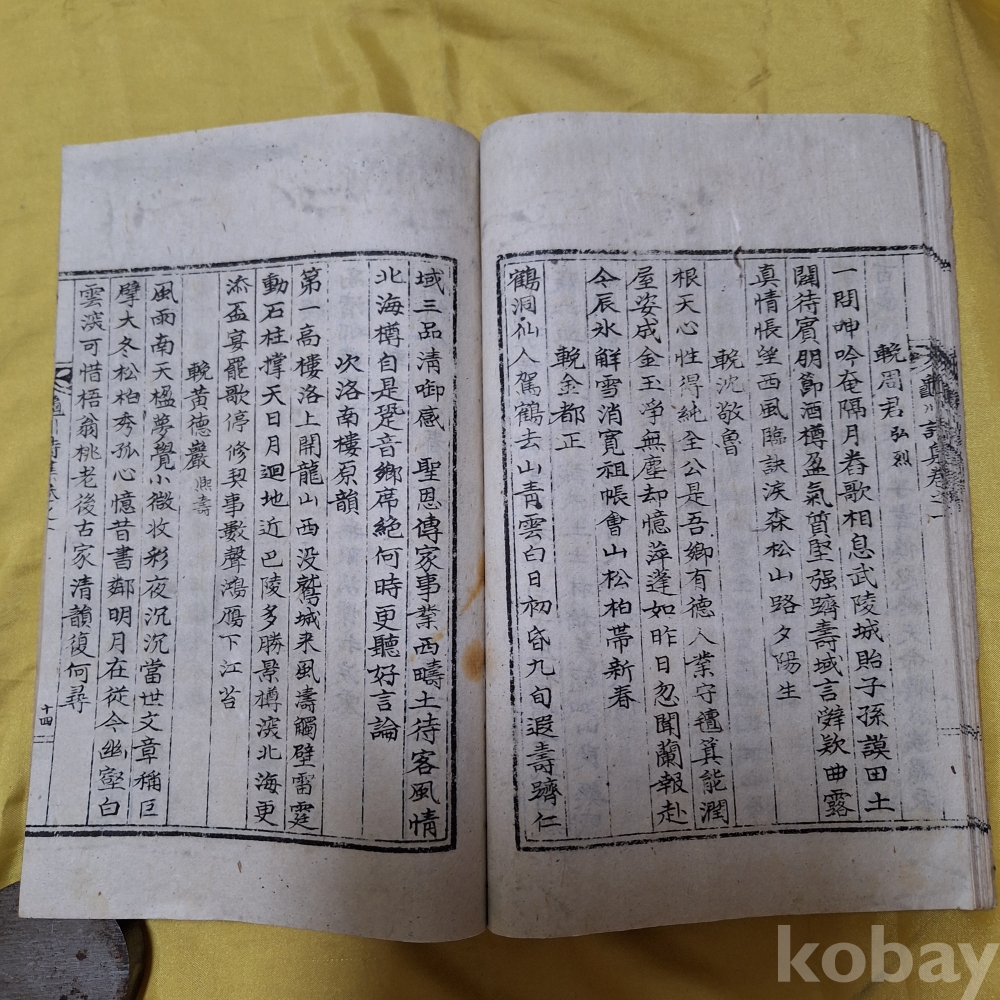 輓周君 弘烈
一閈呻吟奄隔月舂歌相息武陵城貽子孫謨田土
闢待賓朋節酒樽盈氣質堅强躋壽域言辤欵曲露
真情悵望西風臨訣淚森松山路夕陽生
輓沈敬魯
根天心性得純全公是吾鄉有德人業守種箕能潤
屋姿成金玉淨無塵却憶萍蓬如昨日忽聞蘭報赴
今辰氷鮮雪消寬祖帳會山松柏帶新春
輓金都正
鶴洞仙人駕鶴去山靑雲白日初昏九旬遐壽躋仁
域三品淸啣感 聖恩傳家事業西疇土待客風情
北海樽自是跫音鄉席絶何時更聽好言論
次洛南樓原韻
第一高樓洛上開龍山西没鷲城来風濤觸壁雷霆
動石柱撑天日月迴地近巴陵多勝景樽深北海更
添盃宴罷歌停修契事數聲鴻鴈下江苔
輓黄德巖 熙壽
風雨南天楹夢覺小微收彩夜沉沉當世文章稱巨
擘大冬松柏秀孤心憶昔書鄰明月在從今幽壑白
雲深可惜梧翁桃老後古家清韻復何尋
十四
kobay